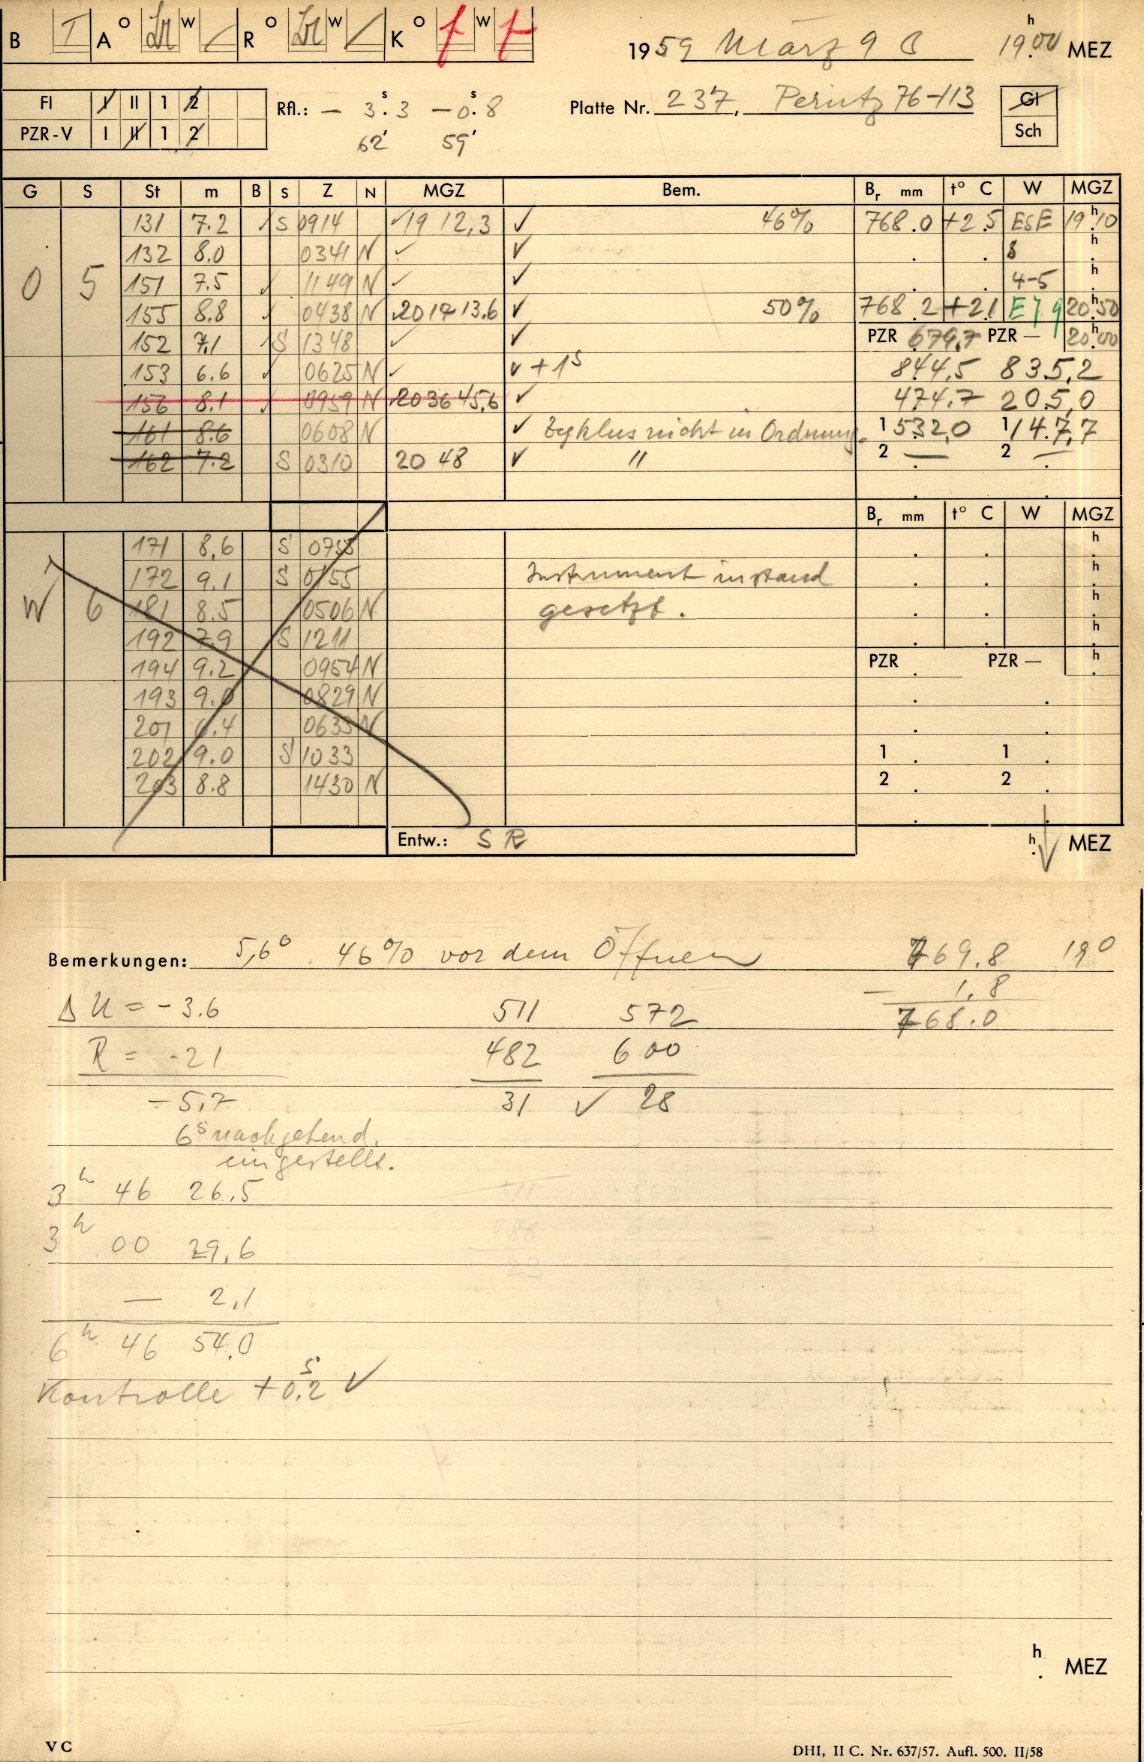 B T A o Lr w / R o Lr w / K o f w f
1959 März 9 C 19h00 MEZ
Fl I II 1 2
PZR-V I II 1 2
Rfl.: — 3s.3 —0s.8
62' 59'
Platte Nr. 237, Perutz 76-113
Gl
Sch
G S St m B S Z N MGZ Bem. Br mm t° C W MGZ
131 7.2 ✓ S 0914 ✓19 12,3 ✓ 46% 768.0 +2.5 ESE 19h10
132 8.0 0341 N ✓ ✓ . . 8 h
O 5 151 7.5 ✓ 1149 N ✓ ✓ . . 4-5 h
155 8.8 ✓ 0438 N 2017 13.6 ✓ 50% 768.2 +2.1 E 7,9 20h50
152 7.1 ✓ S 1348 ✓ ✓ PZR 679,7 PZR — 20h00
153 6.6 ✓ 0625 N ✓ ✓ +1s 844,5 835,2
156 8.1 ✓ 0959 N 2036 45,6 ✓ 474.7 205,0
161 8.6 0608 N ✓ Zyklus nicht in Ordnung. 1 532,0 1 147,7
162 7.2 S 0310 20 48 ✓ " 2 — 2 —
Br mm t° C W MGZ
171 8,6 S 0755 . . h
172 9.1 S 0155 Instrument instand . . h
W 6 181 8.5 0506 N gesetzt. . . h
192 7.9 S 1211 . . h
194 9.2 0954 N PZR . PZR — h
193 9.0 0829 N . .
201 6.4 0635 N . .
202 9.0 S 1033 1 . 1 .
203 8.8 1430 N 2 . 2 .
Entw.: S R h. MEZ
Bemerkungen: 5,6° 46% vor dem Öffnen 769.8 19°
Δ U = -3.6 511 572 — 1,8
R = -21 482 600 768.0
—5,7 31 ✓ 28
6s nachgehend.
eingestellt.
3h 46 26.5
3h 00 29,6
— 2,1
6h 46 54.0
Kontrolle +0s.2 ✓
h. MEZ
V C DHI, II C. Nr. 637/57. Aufl. 500. II/58